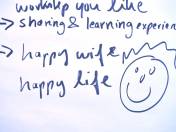 workshop you like
→ sharing & learning experien
→ happy wife
happy life